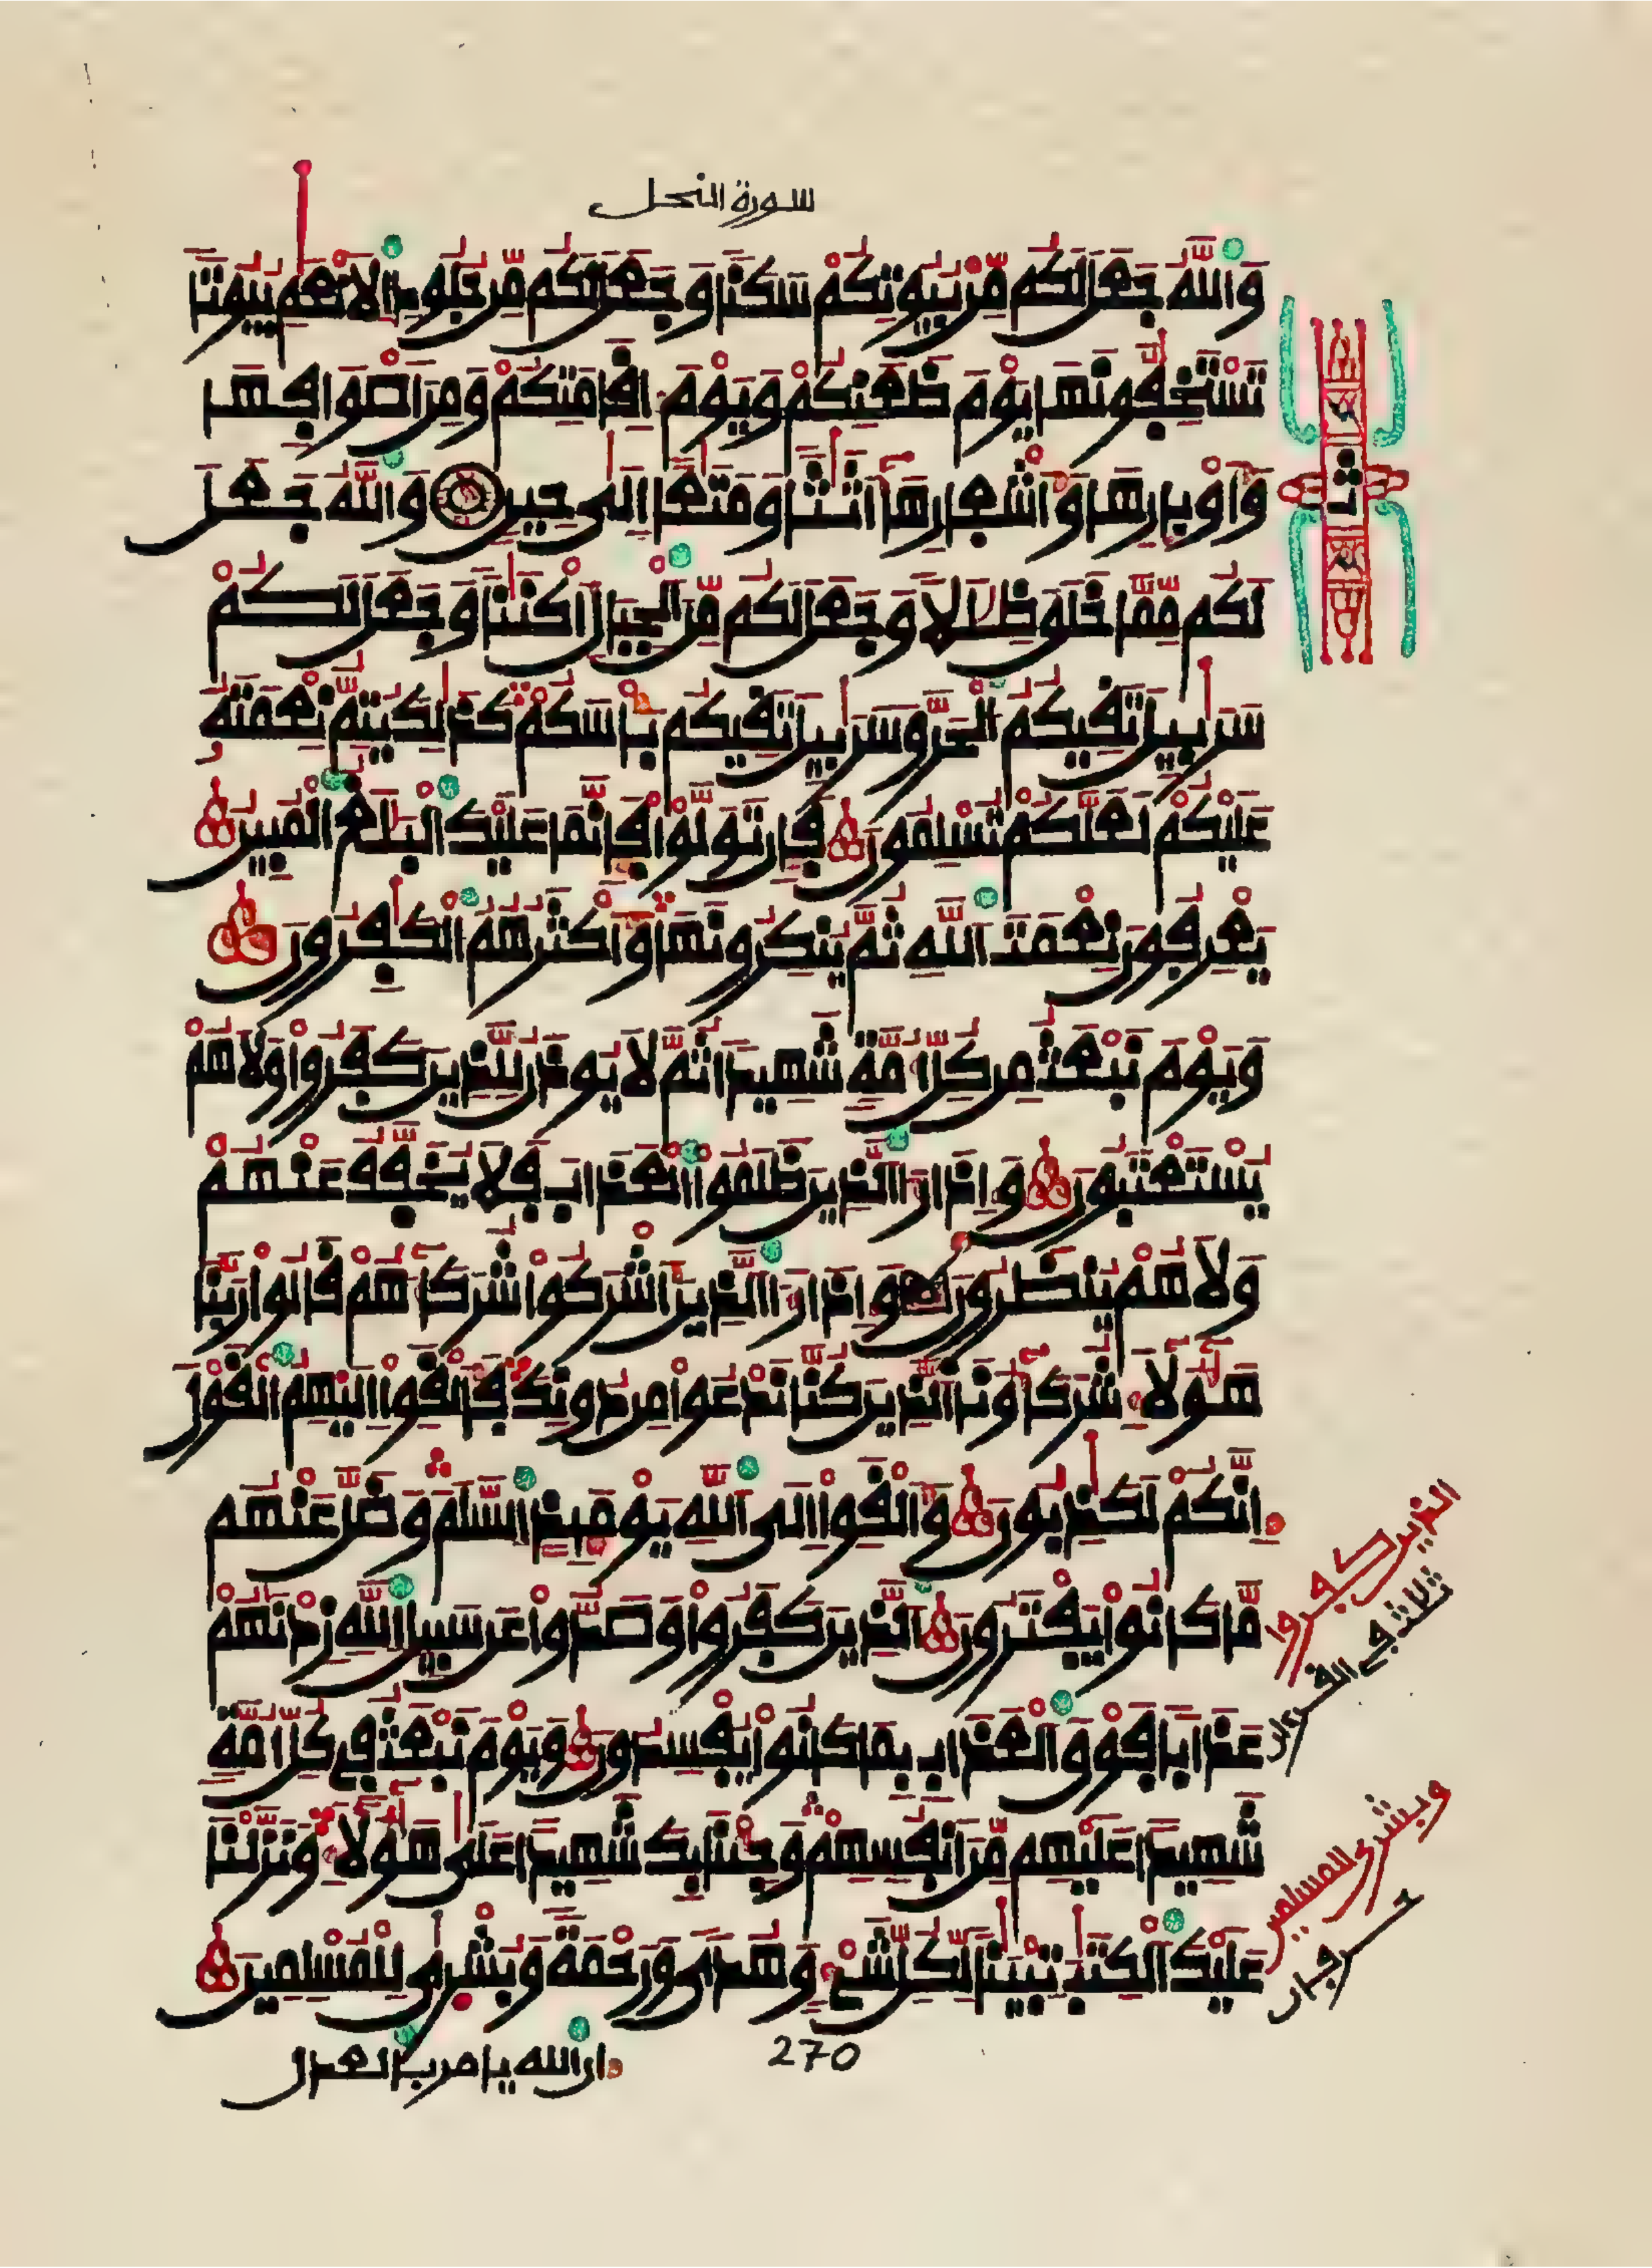 سورة النحل
وَاللَّهُ جَعَلَ لَكُم مِّنۢ بُيُوتِكُمْ سَكَنًا وَجَعَلَ لَكُم مِّن جُلُودِ الَانْعَٰمِ بُيُوتًا
تَسْتَخِفُّونَهَا يَوْمَ ظَعَنِكُمْ وَيَوْمَ إِقَامَتِكُمْ وَمِنَ اَصْوَافِهَا
وَأَوْبَارِهَا وَأَشْعَارِهَا أَثَٰثًا وَمَتَٰعًا إِلَىٰ حِينٍ وَاللَّهُ جَعَلَ
لَكُم مِّمَّا خَلَقَ ظِلَٰلًا وَجَعَلَ لَكُم مِّنَ الْجِبَالِ أَكْنَٰنًا وَجَعَلَ لَكُمْ
سَرَٰبِيلَ تَقِيكُمُ الْحَرَّ وَسَرَٰبِيلَ تَقِيكُم بَأْسَكُمْ كَذَٰلِكَ يُتِمُّ نِعْمَتَهُۥ
عَلَيْكُمْ لَعَلَّكُمْ تُسْلِمُونَ فَإِن تَوَلَّوْا فَإِنَّمَا عَلَيْكَ الْبَلَٰغُ الْمُبِينُ
يَعْرِفُونَ نِعْمَتَ اللَّهِ ثُمَّ يُنكِرُونَهَا وَأَكْثَرُهُمُ الْكَٰفِرُونَ
وَيَوْمَ نَبْعَثُ مِن كُلِّ أُمَّةٍ شَهِيدًا ثُمَّ لَا يُوذَنُ لِلَّذِينَ كَفَرُوا وَلَا هُمْ
يُسْتَعْتَبُونَ وَإِذَا رَءَا الَّذِينَ ظَلَمُوا الْعَذَابَ فَلَا يُخَفَّفُ عَنْهُمْ
وَلَا هُمْ يُنظَرُونَ وَإِذَا رَءَا الَّذِينَ أَشْرَكُوا شُرَكَآءَهُمْ قَالُوا رَبَّنَا
هَٰٓؤُلَآءِ شُرَكَآؤُنَا الَّذِينَ كُنَّا نَدْعُوا مِن دُونِكَ فَأَلْقَوِا اِلَيْهِمُ الْقَوْلَ
إِنَّكُمْ لَكَٰذِبُونَ وَأَلْقَوِا اِلَى اللَّهِ يَوْمَئِذٍ السَّلَمَ وَضَلَّ عَنْهُم
مَّا كَانُوا يَفْتَرُونَ الَّذِينَ كَفَرُوا وَصَدُّوا عَن سَبِيلِ اللَّهِ زِدْنَٰهُمْ
عَذَابًا فَوْقَ الْعَذَابِ بِمَا كَانُوا يُفْسِدُونَ وَيَوْمَ نَبْعَثُ فِي كُلِّ أُمَّةٍ
شَهِيدًا عَلَيْهِم مِّنَ اَنفُسِهِمْ وَجِئْنَا بِكَ شَهِيدًا عَلَىٰ هَٰٓؤُلَآءِ وَنَزَّلْنَا
عَلَيْكَ الْكِتَٰبَ تِبْيَٰنًا لِّكُلِّ شَيْءٍ وَهُدًى وَرَحْمَةً وَبُشْرَىٰ لِلْمُسْلِمِينَ
ان الله يامر بالعدل
270
ثمن
الذين كفروا
ثلاث في القرءان
وبشرى للمسلمين
حرفان